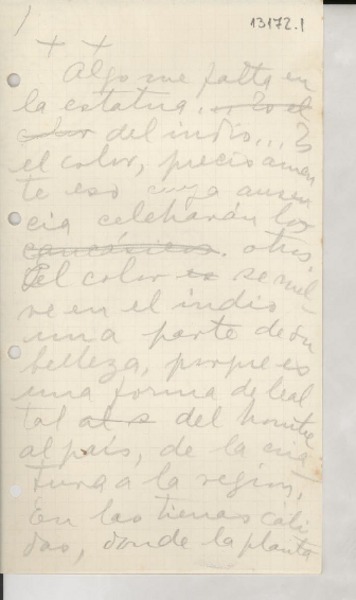 13172.1
Algo me falta en
la estatua. o Es el
color del indio... Es
el color, precisamen
te eso cuya ausen
cia celebrarán los
caucásicos. otros
El color es se vuel-
ve en el indio
una parte de su
belleza, porque es
una forma de leal
tad al s del hombre
al país, de la cria
tura a la región,
En las tierras cáli
das, donde la planta